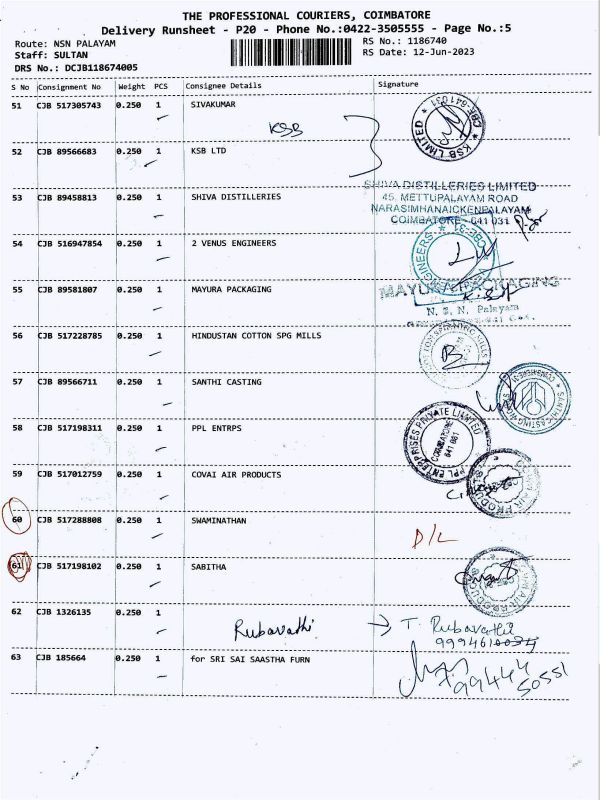 THE PROFESSIONAL COURIERS, COIMBATORE
Delivery Runsheet - P20 - Phone No.:0422-3505555 - Page No.:5
Route: NSN PALAYAM RS No.: 1186740
Staff: SULTAN RS Date: 12-Jun-2023
DRS No.: DCJB118674005
S No Consignment No Weight PCS Consignee Details Signature
51 CJB 517305743 0.250 1 SIVAKUMAR
KSB
KSB LIMITED * CBE-641031 *
52 CJB 89566683 0.250 1 KSB LTD
53 CJB 89458813 0.250 1 SHIVA DISTILLERIES
SHIVA DISTILLERIES LIMITED
45, METTUPALAYAM ROAD
NARASIMHANAICKENPALAYAM
COIMBATORE - 641 031
54 CJB 516947854 0.250 1 2 VENUS ENGINEERS
ENGINEERS * CBE-31 *
55 CJB 89581807 0.250 1 MAYURA PACKAGING
MAYURA PACKAGING
N. S. N. Palayam
56 CJB 517228785 0.250 1 HINDUSTAN COTTON SPG MILLS
57 CJB 89566711 0.250 1 SANTHI CASTING
SANTHI CASTING
58 CJB 517198311 0.250 1 PPL ENTRPS
PPL ENTERPRISES PRIVATE LIMITED
COIMBATORE
59 CJB 517012759 0.250 1 COVAI AIR PRODUCTS
60 CJB 517288808 0.250 1 SWAMINATHAN
D/L
61 CJB 517198102 0.250 1 SABITHA
62 CJB 1326135 0.250 1
Rubavathi → T. Rubavathi
63 CJB 185664 0.250 1 for SRI SAI SAASTHA FURN
99444
50551